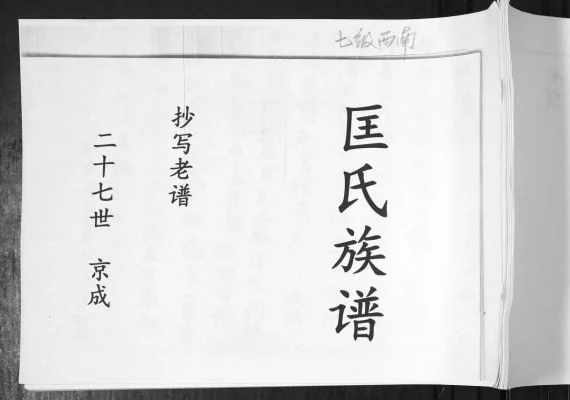 七级西南
匡氏族谱
抄写老谱
二十七世 京成